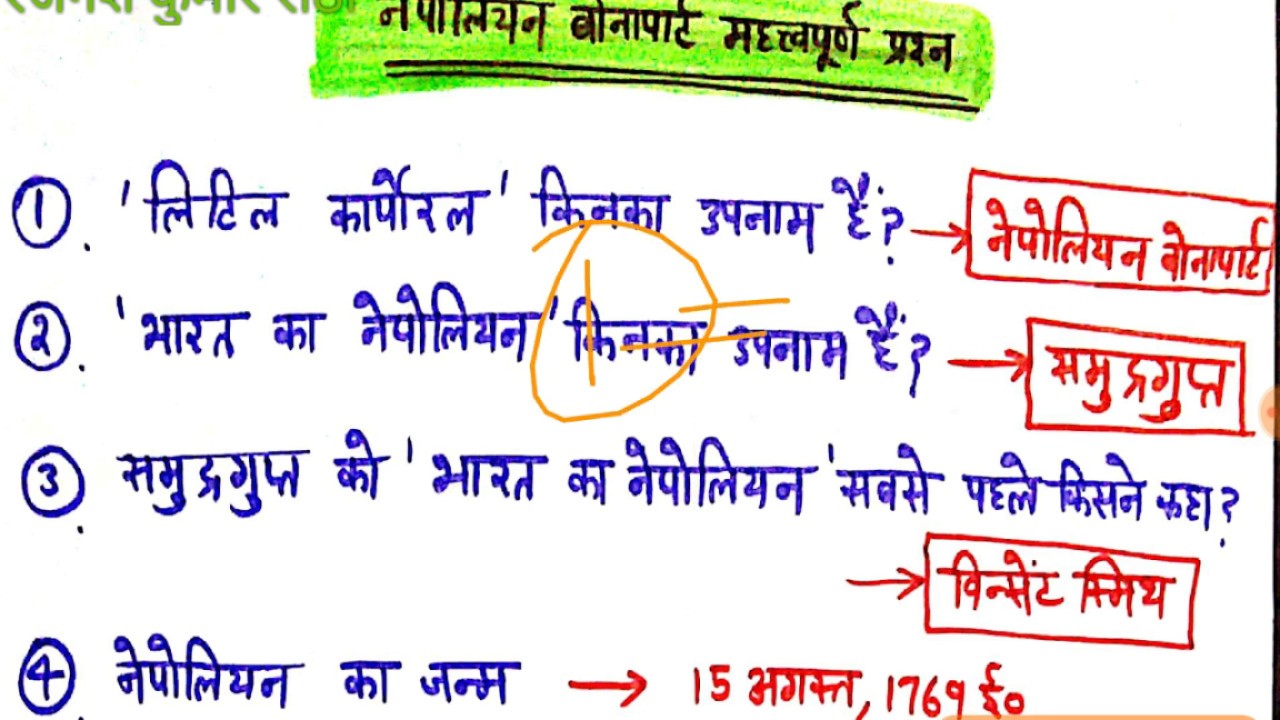 कुमार
नेपोलियन बोनापार्ट महत्त्वपूर्ण प्रश्न
①. 'लिटिल कार्पोरल' किनका उपनाम हैं? → नेपोलियन बोनापार्ट
②. 'भारत का नेपोलियन' किनका उपनाम हैं? → समुद्रगुप्त
③. समुद्रगुप्त को 'भारत का नेपोलियन' सबसे पहले किसने कहा?
→ विन्सेंट स्मिथ
④. नेपोलियन का जन्म → 15 अगस्त, 1769 ई०